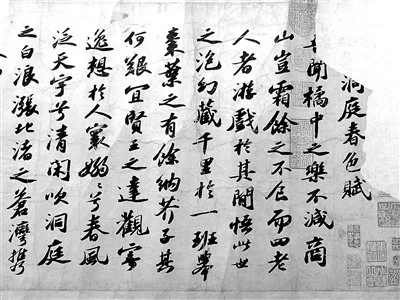 洞庭春色賦
聞橘中之樂不減商
山豈霜餘之不食而四老
人者游戲於其間悟此世
之泡幻藏千里於一班舉
棗葉之有餘納芥子其
何艱宜賢王之達觀寄
逸想於人寰嫋〻兮春風
泛天宇兮清閑吹洞庭
之白浪漲北渚之蒼灣攜